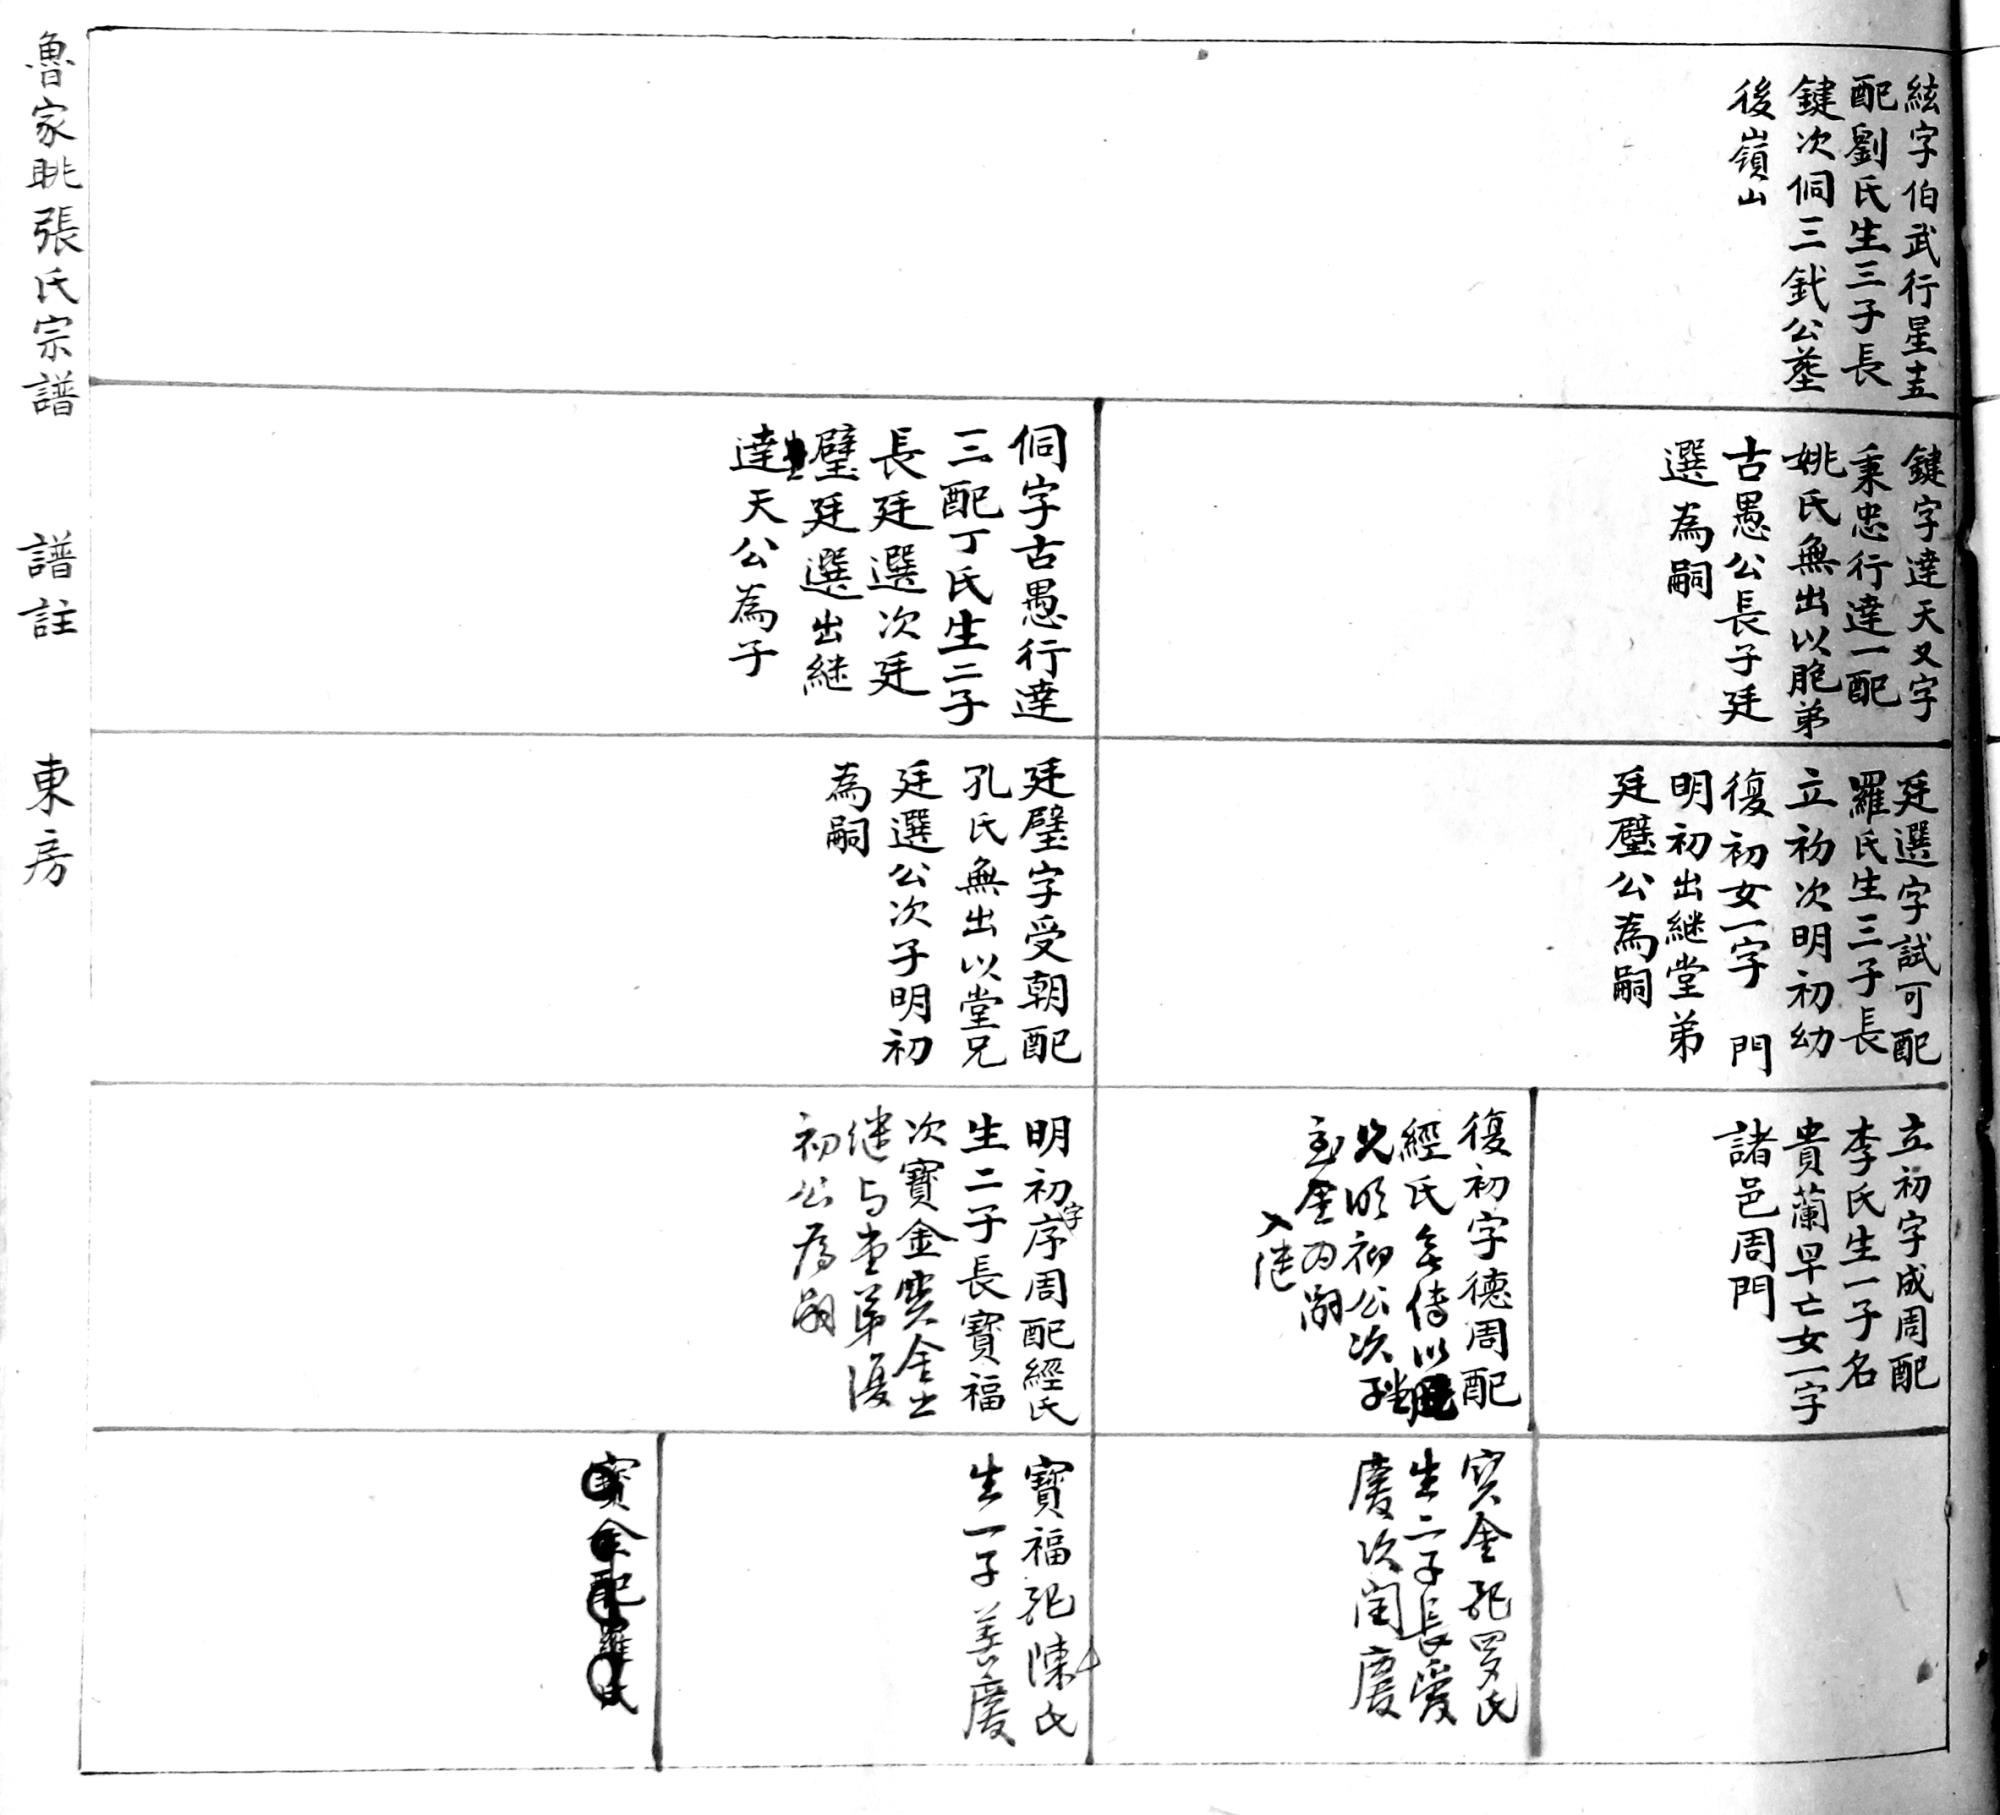 絃字伯武行星十五
配劉氏生三子長
鍵次侗三釴公塟
後嶺山
鍵字達天又字
秉忠行達一配
姚氏無出以胞弟
古愚公長子廷
選為嗣
侗字古愚行達
三配丁氏生二子
長廷選次廷
璧廷選出継
達天公為子
廷選字試可配
羅氏生三子長
立初次明初幼
復初女一字 門
明初出継堂弟
廷璧公為嗣
廷璧字受朝配
孔氏無出以堂兄
廷選公次子明初
為嗣
立初字成周配
李氏生一子名
貴蘭早亡女一字
諸邑周門
復初字德周配
經氏無傳以堂
兄明初公次子
宝金為嗣
入继
明初字序周配經氏
生二子長寶福
次寶金寶金出
继与堂弟復
初公為嗣
宝金配罗氏
生二子長愛
慶次闰慶
寶福配陳氏
生一子善慶
寶金配羅氏
魯家眺張氏宗譜 譜註 東房